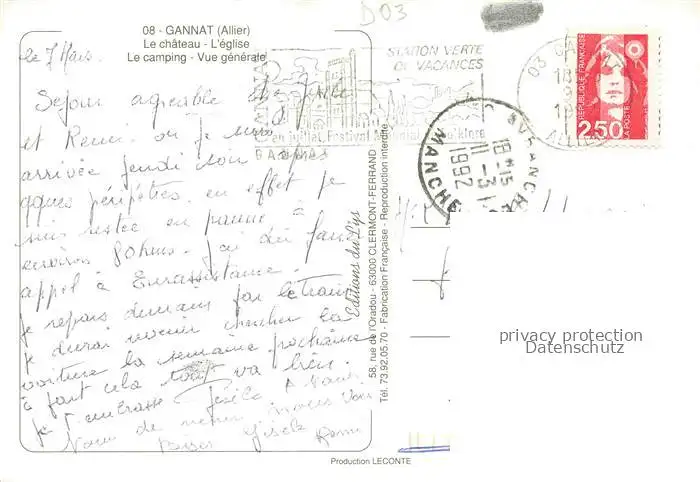 D03
08 - GANNAT (Allier)
Le château - L'église
Le camping - Vue générale
le 7 Mars.
Séjour agréable chez
et Remi. où je suis
arrivée jeudi soir après
qques péripéties. en effet je
suis restée en panne à
environ 80 kms. J'ai dû faire
appel à Eurassistance.
je repars demain par le train
je devrai revenir chercher la
voiture la semaine prochaine
à part cela tout va bien.
Je t'embrasse Gisèle
Bises Gisèle Remi
GANNAT
STATION VERTE
DE VACANCES
en juillet, Festival Mondial de Folklore
03 GANNAT
18
ALLIER
RÉPUBLIQUE FRANÇAISE
2,50
LA POSTE
AVRANCHES
18 H 15
11 - 3
1992
MANCHE
Editions du Lys
58, rue de l'Oradou - 63000 CLERMONT-FERRAND
Tél. 73.92.05.70 - Fabrication Française - Reproduction interdite
privacy protection
Datenschutz
Production LECONTE